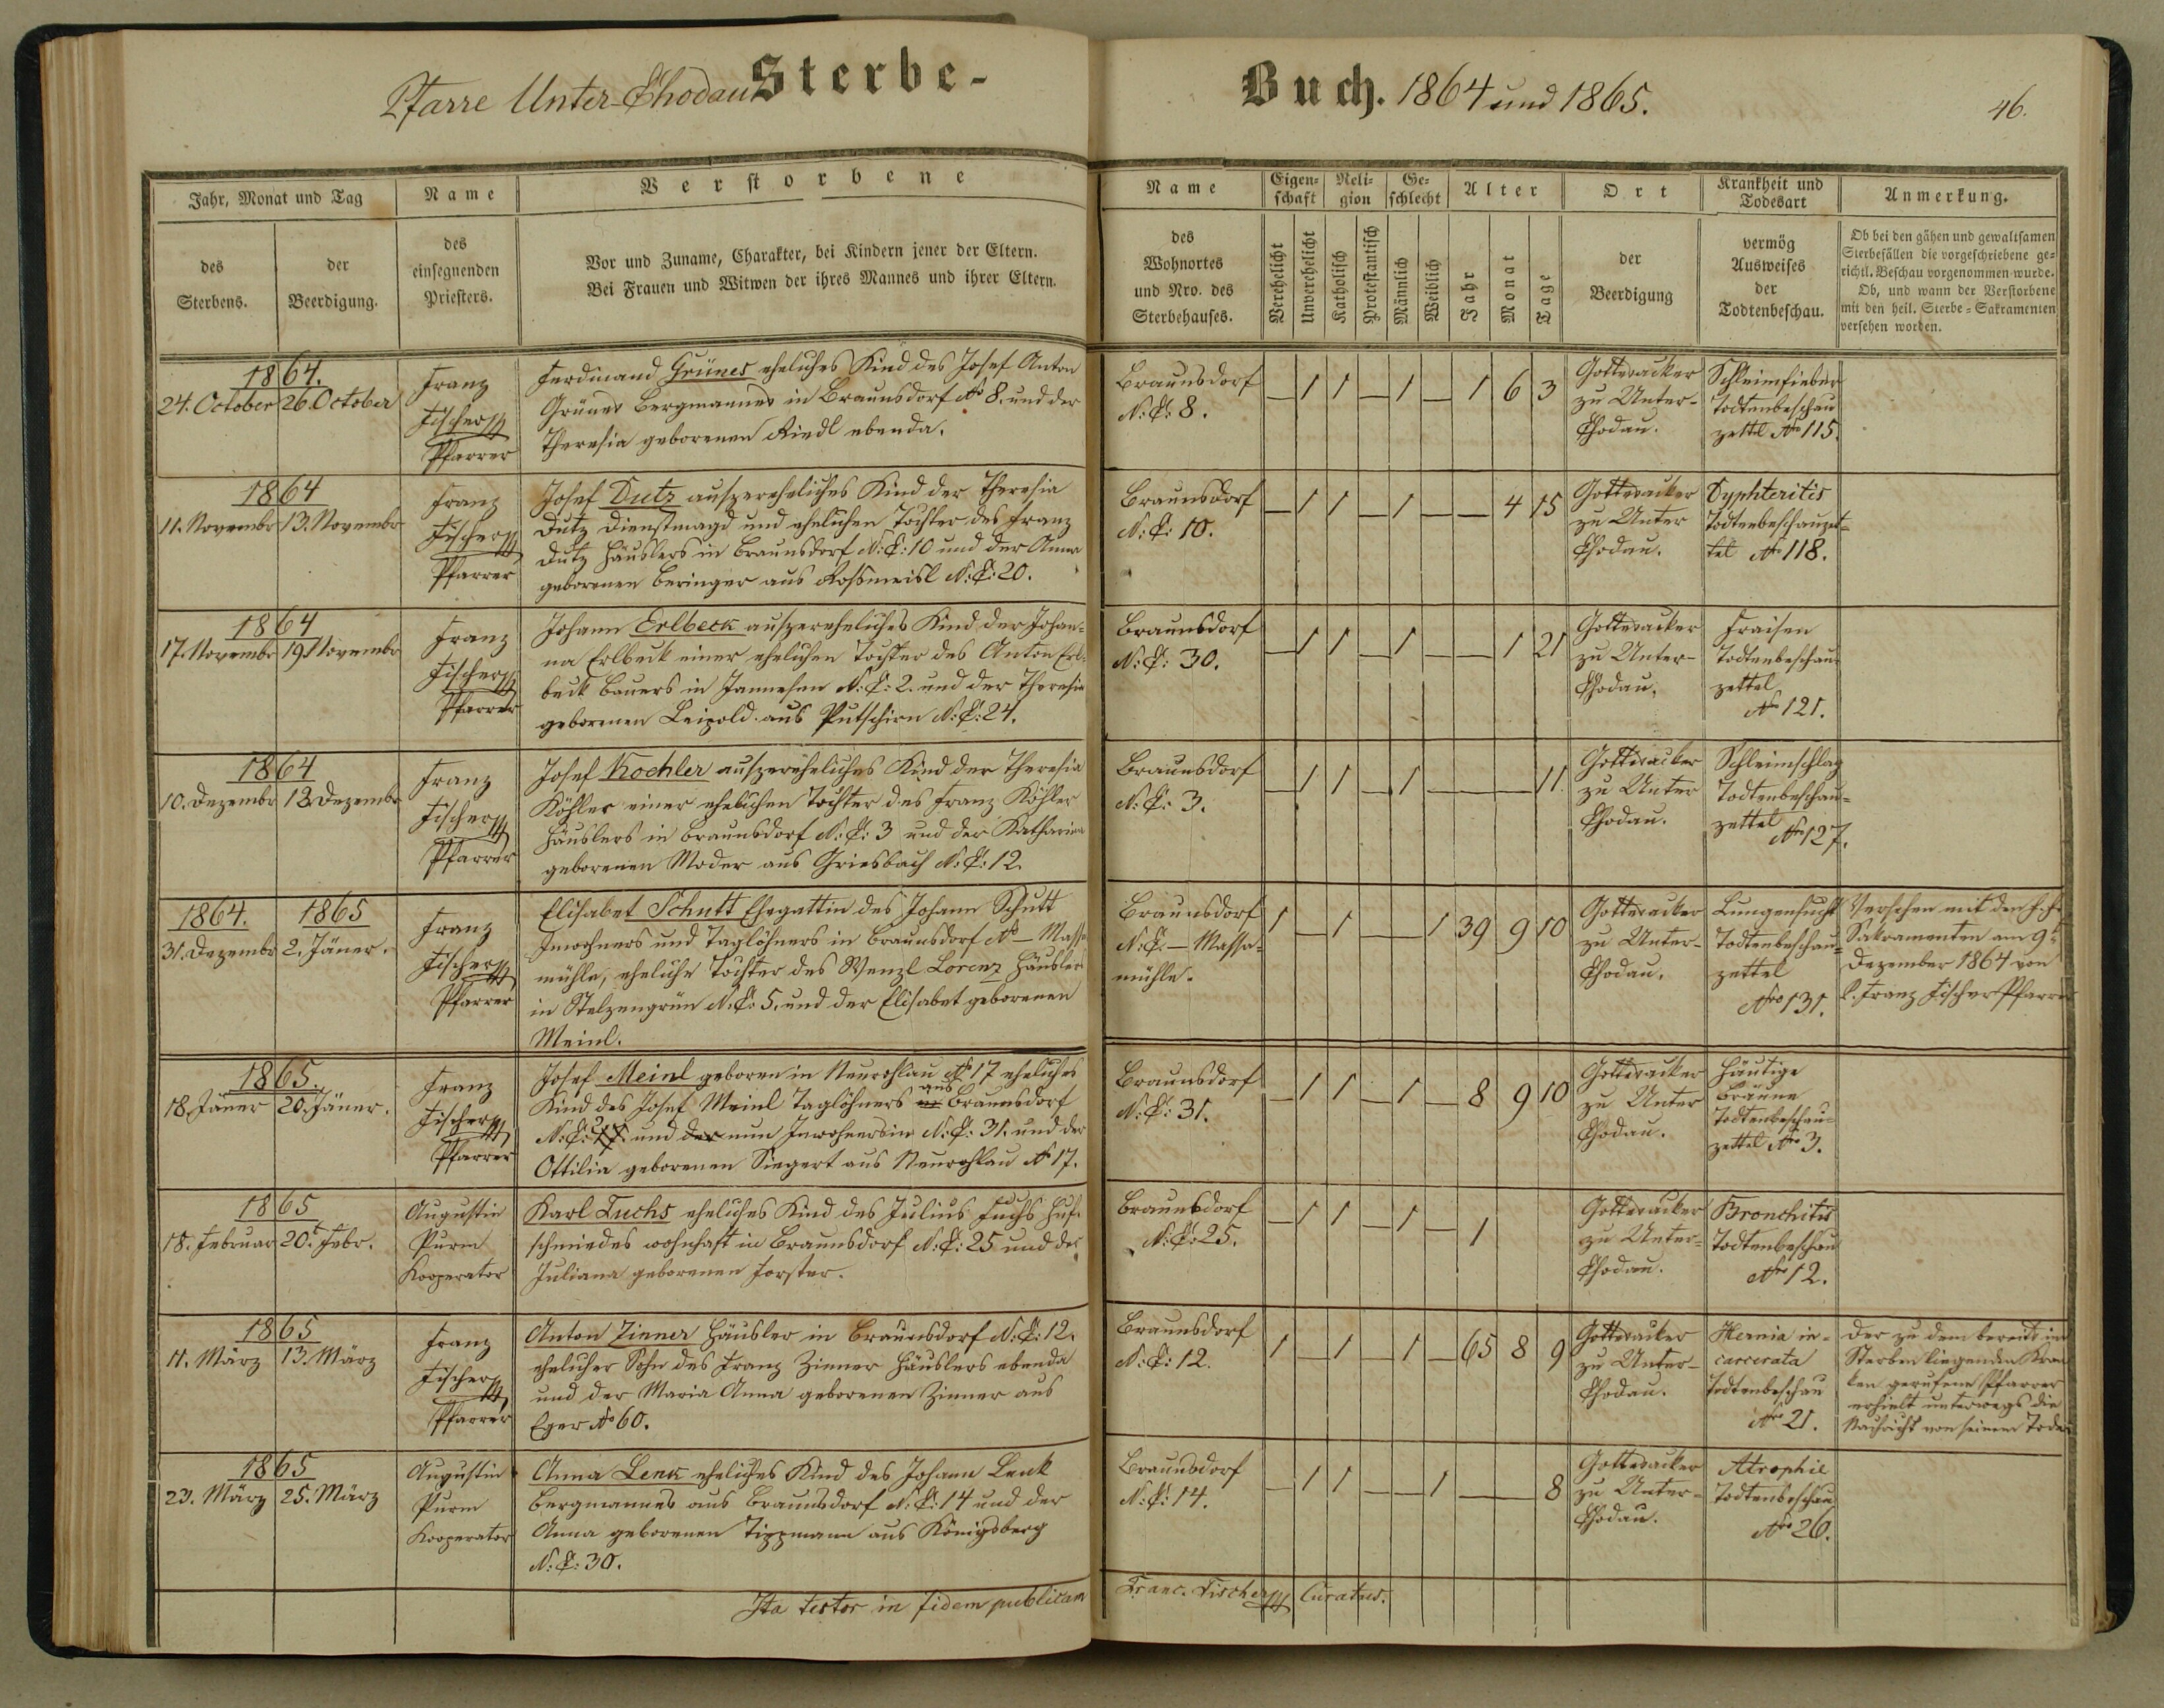 Pfarre Unter-Chodau Sterbe-
Buch. 1864 und 1865.
46.
Jahr, Monat und Tag
Name
Verstorbene
des
Sterbens.
der
Beerdigung.
des
einsegnenden
Priesters.
Vor und Zuname, Charakter, bei Kindern jener der Eltern.
Bei Frauen und Witwen der ihres Mannes und ihrer Eltern.
Name
Eigen=
schaft
Reli=
gion
Ge=
schlecht
Alter
Ort
Krankheit und
Todesart
Anmerkung.
des
Wohnortes
und Nro. des
Sterbehauses.
Verehelicht
Unverehelicht
Katholisch
Protestantisch
Männlich
Weiblich
Jahr
Monat
Tage
der
Beerdigung
vermög
Ausweises
der
Todtenbeschau.
Ob bei den gähen und gewaltsamen
Sterbefällen die vorgeschriebene ge=
richtl. Beschau vorgenommen wurde.
Ob, und wann der Verstorbene
mit den heil. Sterbe=Sakramenten
versehen worden.
1864.
24. October 26. October
Franz
Fischer
Pfarrer
Ferdinand Grünes eheliches Kind des Josef Anton
Grünes Bergmannes in Braunsdorf No 8. und der
Theresia geborenen Riedl ebenda.
Braunsdorf
N: C: 8.
— 1 1 — 1 — 1 6 3
Gottesacker
zu Unter-
Chodau.
Schleimfieber
Todtenbeschau
zettel Nro 115.
1864
11. Novembr 13. Novembr
Franz
Fischer
Pfarrer
Josef Dutz auszereheliches Kind der Theresia
Dutz Dienstmagd und ehelichen Tochter des Franz
Dutz Häuslers in Braunsdorf N: C: 10 und der Anna
geborenen Beringer aus Roßmeisl N: C: 20.
Braunsdorf
N: C: 10.
— 1 1 — 1 — — 4 15
Gottesacker
zu Unter
Chodau.
Dyphteritis
Todtenbeschauzet=
tel Nro 118.
1864
17. Novembr 19. Novembr
Franz
Fischer
Pfarrer
Johann Erlbeck auszereheliches Kind der Johan=
na Erlbeck einer ehelichen Tochter des Anton Erl=
beck Bauers in Jannesen N: C: 2. und der Theresia
geborenen Leipold aus Putschirn N: C: 24.
Braunsdorf
N: C: 30.
— 1 1 — 1 — — 1 21
Gottesacker
zu Unter-
Chodau.
Fraisen
Todtenbeschau=
zettel
Nro 121.
1864
10. Dezembr 13. Dezembr
Franz
Fischer
Pfarrer
Josef Kochler auszereheliches Kind der Theresia
Köhler einer ehelichen Tochter des Franz Köhler
Häuslers in Braunsdorf N: C: 3 und der Katharina
geborenen Moder aus Griesbach N: C: 12.
Braunsdorf
N: C: 3.
— 1 1 — 1 — — — 11.
Gottesacker
zu Unter
Chodau.
Schleimschlag
Todtenbeschau=
zettel
Nro 127.
1864. 1865
31. Dezembr 2. Jäner.
Franz
Fischer
Pfarrer
Elisabet Schutt Ehegattin des Johann Schutt
Inwohners und Taglöhners in Braunsdorf No — Massa
mühle, eheliche Tochter des Wenzl Lorenz Häuslers
in Stelzengrün N: C: 5. und der Elisabet geborenen
Meinl.
Braunsdorf
N: C: — Massa=
mühle.
1 — 1 — — 1 39 9 10
Gottesacker
zu Unter-
Chodau.
Lungensucht
Todtenbeschau=
zettel
Nro 131.
Versehen mit den h. h.
Sakramenten am 9t
Dezember 1864 von
P. Franz Fischer Pfarrer
1865.
18. Jäner 20. Jäner.
Franz
Fischer
Pfarrer
Josef Meinl geboren in Neurohlau No 17 eheliches
Kind des Josef Meinl Taglöhners aus Braunsdorf
N: C: und der nun Inwohners in N: C: 31. und der
Ottilia geborenen Siegert aus Neurohlau No 17.
Braunsdorf
N: C: 31.
— 1 1 — 1 — 8 9 10
Gottesacker
zu Unter
Chodau.
Häutige
Bräune
Todtenbeschau=
zettel Nro 3.
1865
18. Februar 20. Febr.
Augustin
Purm
Kooperator
Karl Fuchs eheliches Kind des Julius Fuchs Huf=
schmiedes wohnhaft in Braunsdorf N: C: 25 und der
Juliana geborenen Forster.
Braunsdorf
N: C: 25.
— 1 1 — 1 — 1
Gottesacker
zu Unter-
Chodau.
Bronchitis
Todtenbeschau
Nro 12.
1865
11. März 13. März
Franz
Fischer
Pfarrer
Anton Zinner Häusler in Braunsdorf N: C: 12.
ehelicher Sohn des Franz Zinner Häuslers ebenda
und der Maria Anna geborenen Zinner aus
Eger No 60.
Braunsdorf
N: C: 12.
1 — 1 — 1 — 65 8 9
Gottesacker
zu Unter-
Chodau.
Hernia in-
carcerata
Todtenbeschau
Nro 21.
Der zu dem bereits im
Sterben liegenden Kran
ken gerufene Pfarrer
erhielt unterwegs die
Nachricht von seinem Tode.
1865
23. März 25. März
Augustin
Purm
Kooperator
Anna Lenk eheliches Kind des Johann Lenk
Bergmannes aus Braunsdorf N: C: 14 und der
Anna geborenen Tippmann aus Königsberg
N: C: 30.
Braunsdorf
N: C: 14.
— 1 1 — — 1 — — 8
Gottesacker
zu Unter-
Chodau.
Atrophie
Todtenbeschau
Nro 26.
Ita testor in fidem publicam
Franc. Fischer Curatus.